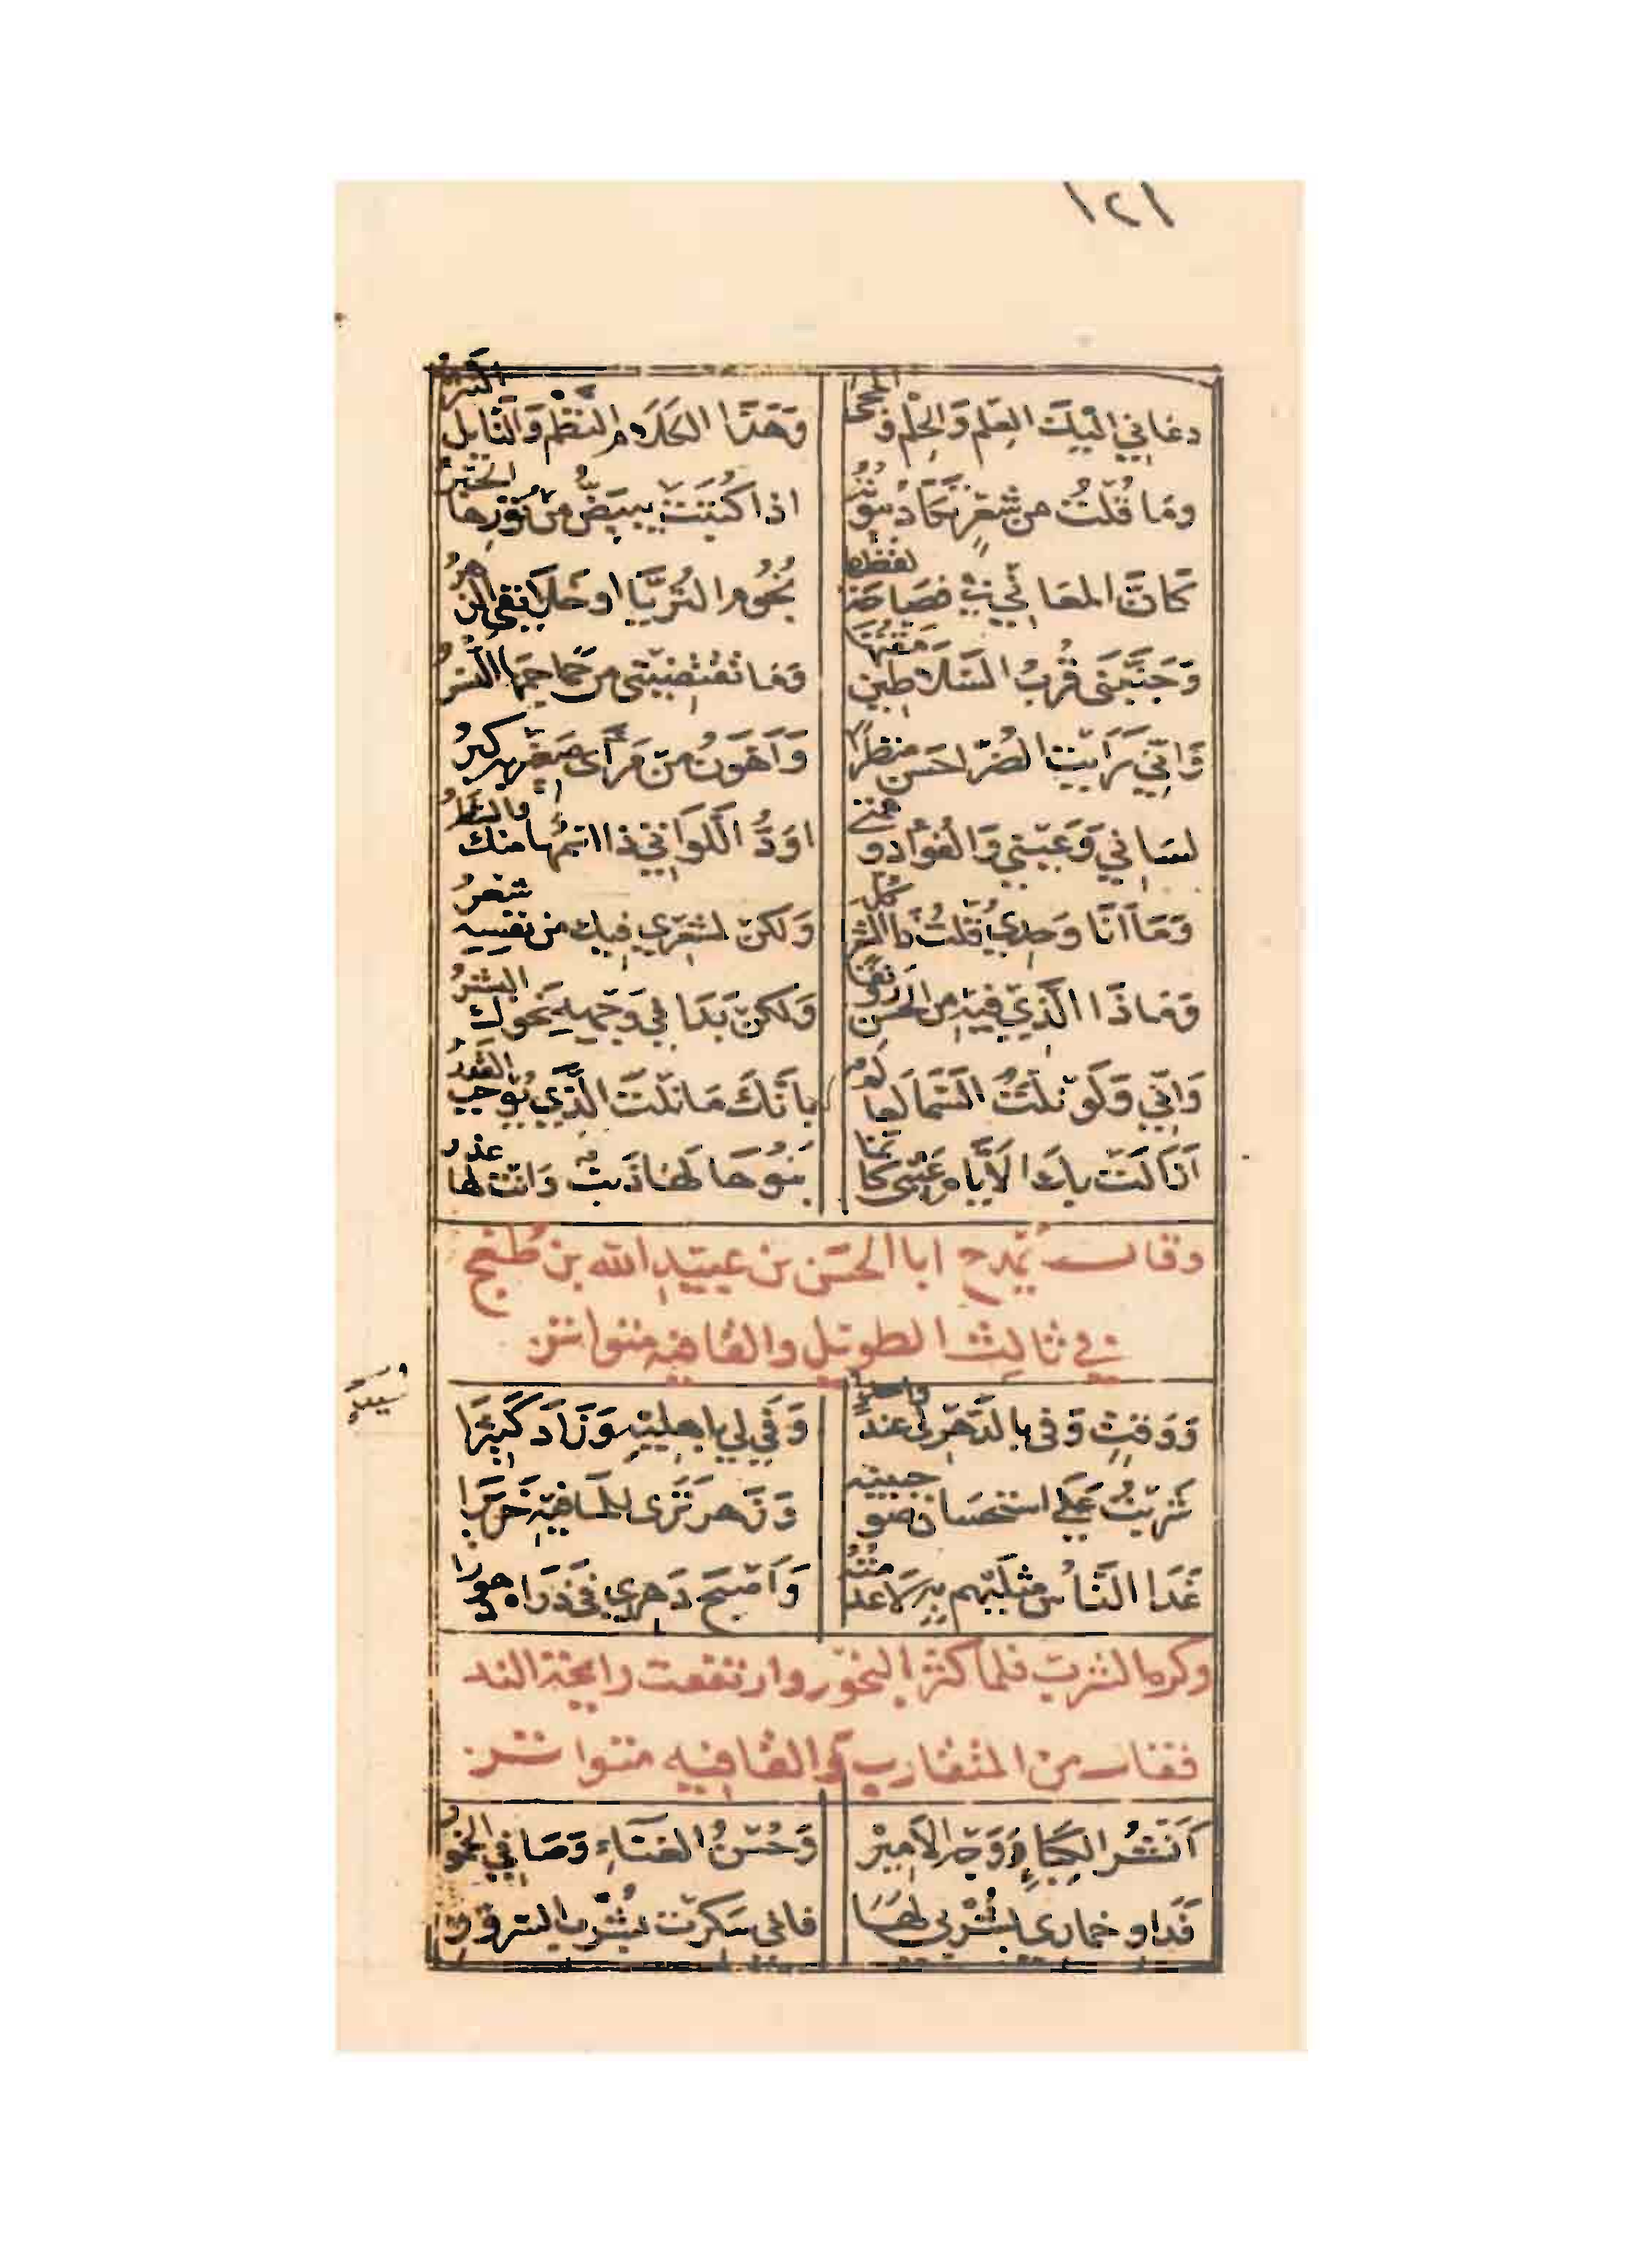 ١٢١
دعاني اليك العلم والحلم والحجى وهذا الكلام النظم والنايل النثر
وما قلت من شعر تكاد بيوته اذا كتبت يبيض من نورها الحبر
كان المعاني في فصاحة لفظها نجوم الثريا او خلايقك الزهر
وجنبني قرب السلاطين مقتها وما تقتضيني من جماجمها النسر
واني رايت الضر احسن منظرا واهون من مرأى صغير به كبر
لساني وعيني والفؤاد وهمتي اود اللواتي ذا اسمها منك والشطر
وما انا وحدي قلت ذا الشعر كله ولكن لشعري فيك من نفسه شعر
وماذا الذي فيه من الحسن رونقا ولكن بدا في وجهه نحوك البشر
واني ولو نلت السما لعالم بانك ما نلت الذي يوجب القدر
ازالت بك الايام عتبي كانما بنوها لها ذنب وانت لها عذر
وقال يمدح ابا الحسن بن عبيد الله بن طغج
في ثالث الطويل والقافيه متواتر
ووقت وفى بالدهر لي عند واحد وفي لي باهليه وزاد كثيرا
شربت على استحسان ضو جبينه وزهر ترى للماء فيه خريرا
غدا الناس مثليهم به لا عدمته واصبح دهري في ذراه دهورا
وكره الشرب فلما كثر البخور وارتفعت رايحة الند
فقال من المتقارب والقافيه متواتر
أنشر الكباء ووجه الامير وحسن الغناء وصافي الخمور
فداو خماري بشربي لها فاني سكرت بشرب السرور